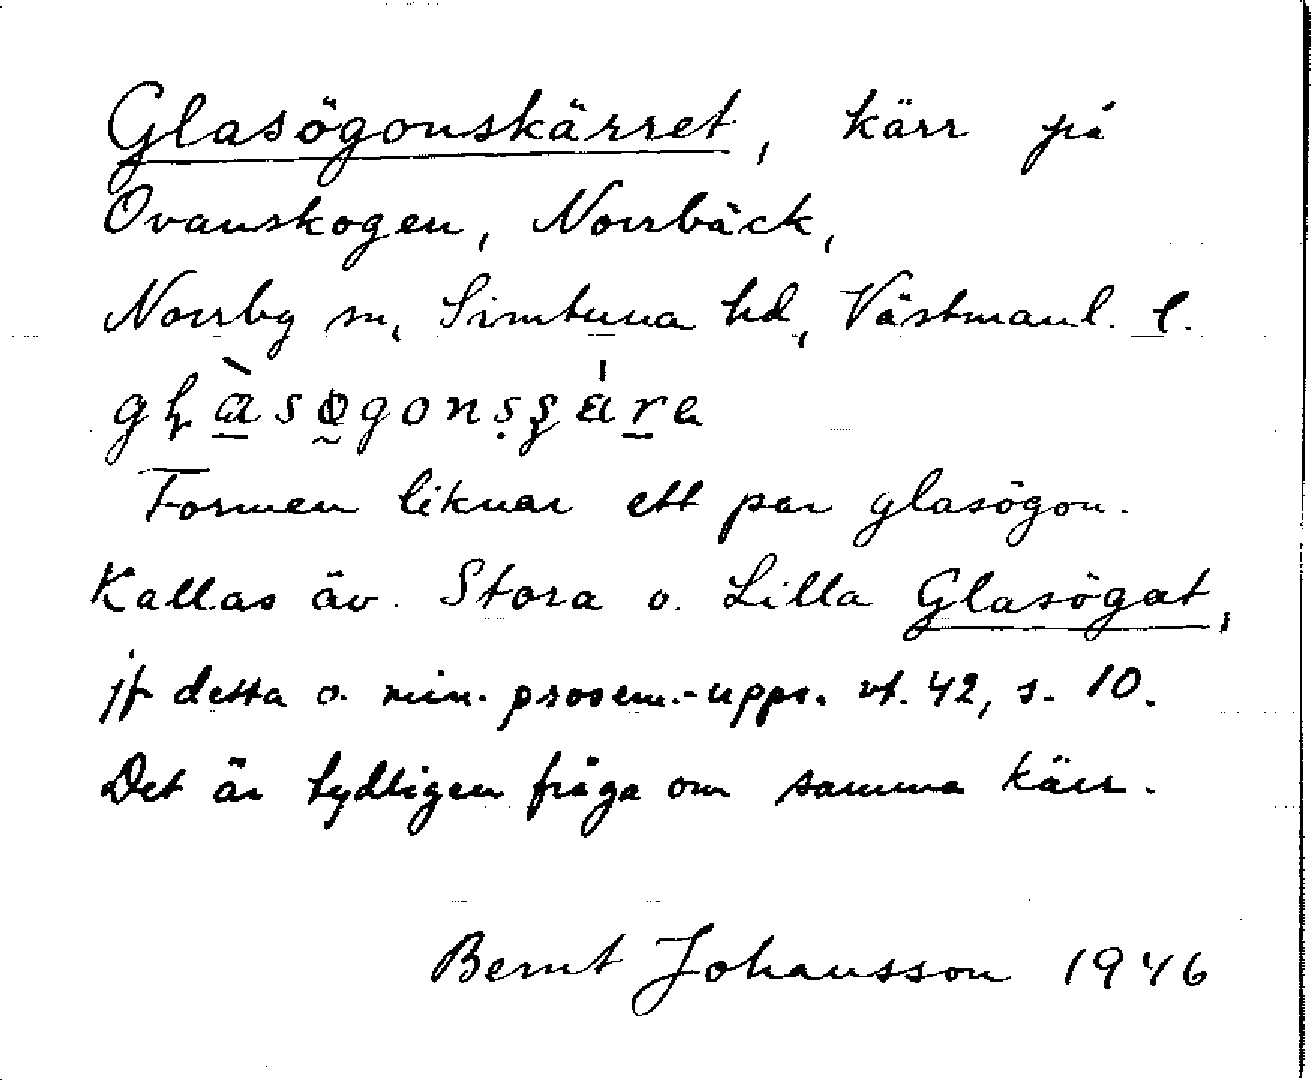 Glasögonskärret, kärr på
Ovanskogen, Norrbäck,
Norrby sn, Simtuna hd, Västmanl. l.
Formen liknar ett par glasögon.
Kallas äv. Stora o. Lilla Glasögat,
jf detta o. min. prosem.-upps. vt. 42, s. 10.
Det är tydligen fråga om samma kärr.
Bernt Johansson 1946